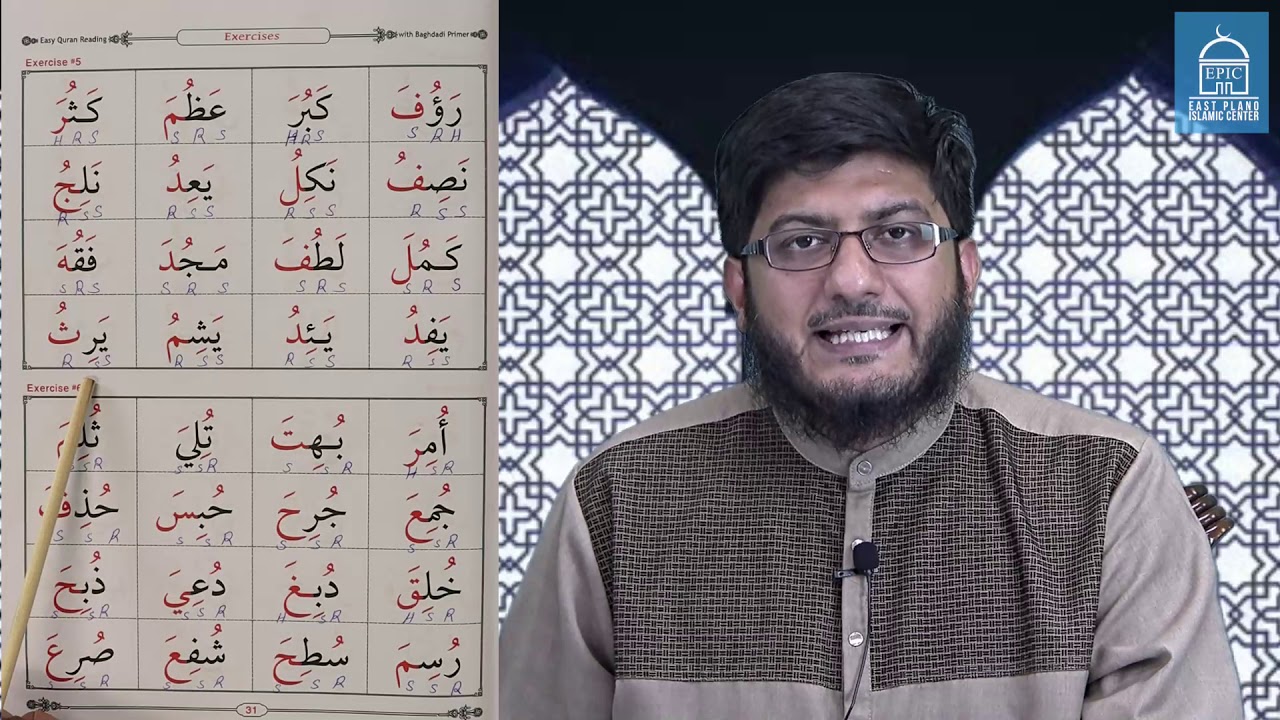 Easy Quran Reading
Exercises
with Baghdadi Primer
Exercise #5
رَؤُفَ كَبُرَ عَظُمَ كَثُرَ
S R H H R S S R S H R S
نَصِفُ نَكِلُ يَعِدُ نَلِجُ
R S S R S S R S S R S S
كَمُلَ لَطُفَ مَجُدَ فَقُهَ
S R S S R S S R S S R S
يَفِدُ يَئِدُ يَشِمُ يَرِثُ
R S S R S S R S S R S S
Exercise #6
أُمِرَ بُهِتَ تُلِيَ ثُلِمَ
H S R S S R S S R S R
جُمِعَ جُرِحَ حُبِسَ حُذِفَ
S S R S S R S S R S S R
خُلِقَ دُبِغَ دُعِيَ ذُبِحَ
H S R H S R S S R S S R
رُسِمَ سُطِحَ شُفِعَ صُرِعَ
S S R S S R S S R S S R
31
EPIC
EAST PLANO
ISLAMIC CENTER